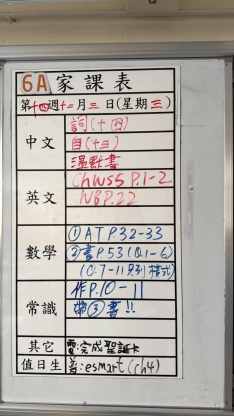 6A 家課表
第十四週十二月三日(星期三)
中文
詞(十四)
自(十三)
溫默書
英文
Chwss P.1-2
WB P.22
數學
①AT P.32-33
②書P.53(Q.1-6)
(Q.7-11只列橫式)
常識
作P.10-11
帶③書!!
其它
電:完成聖誕卡
值日生
:esmart(ch4)